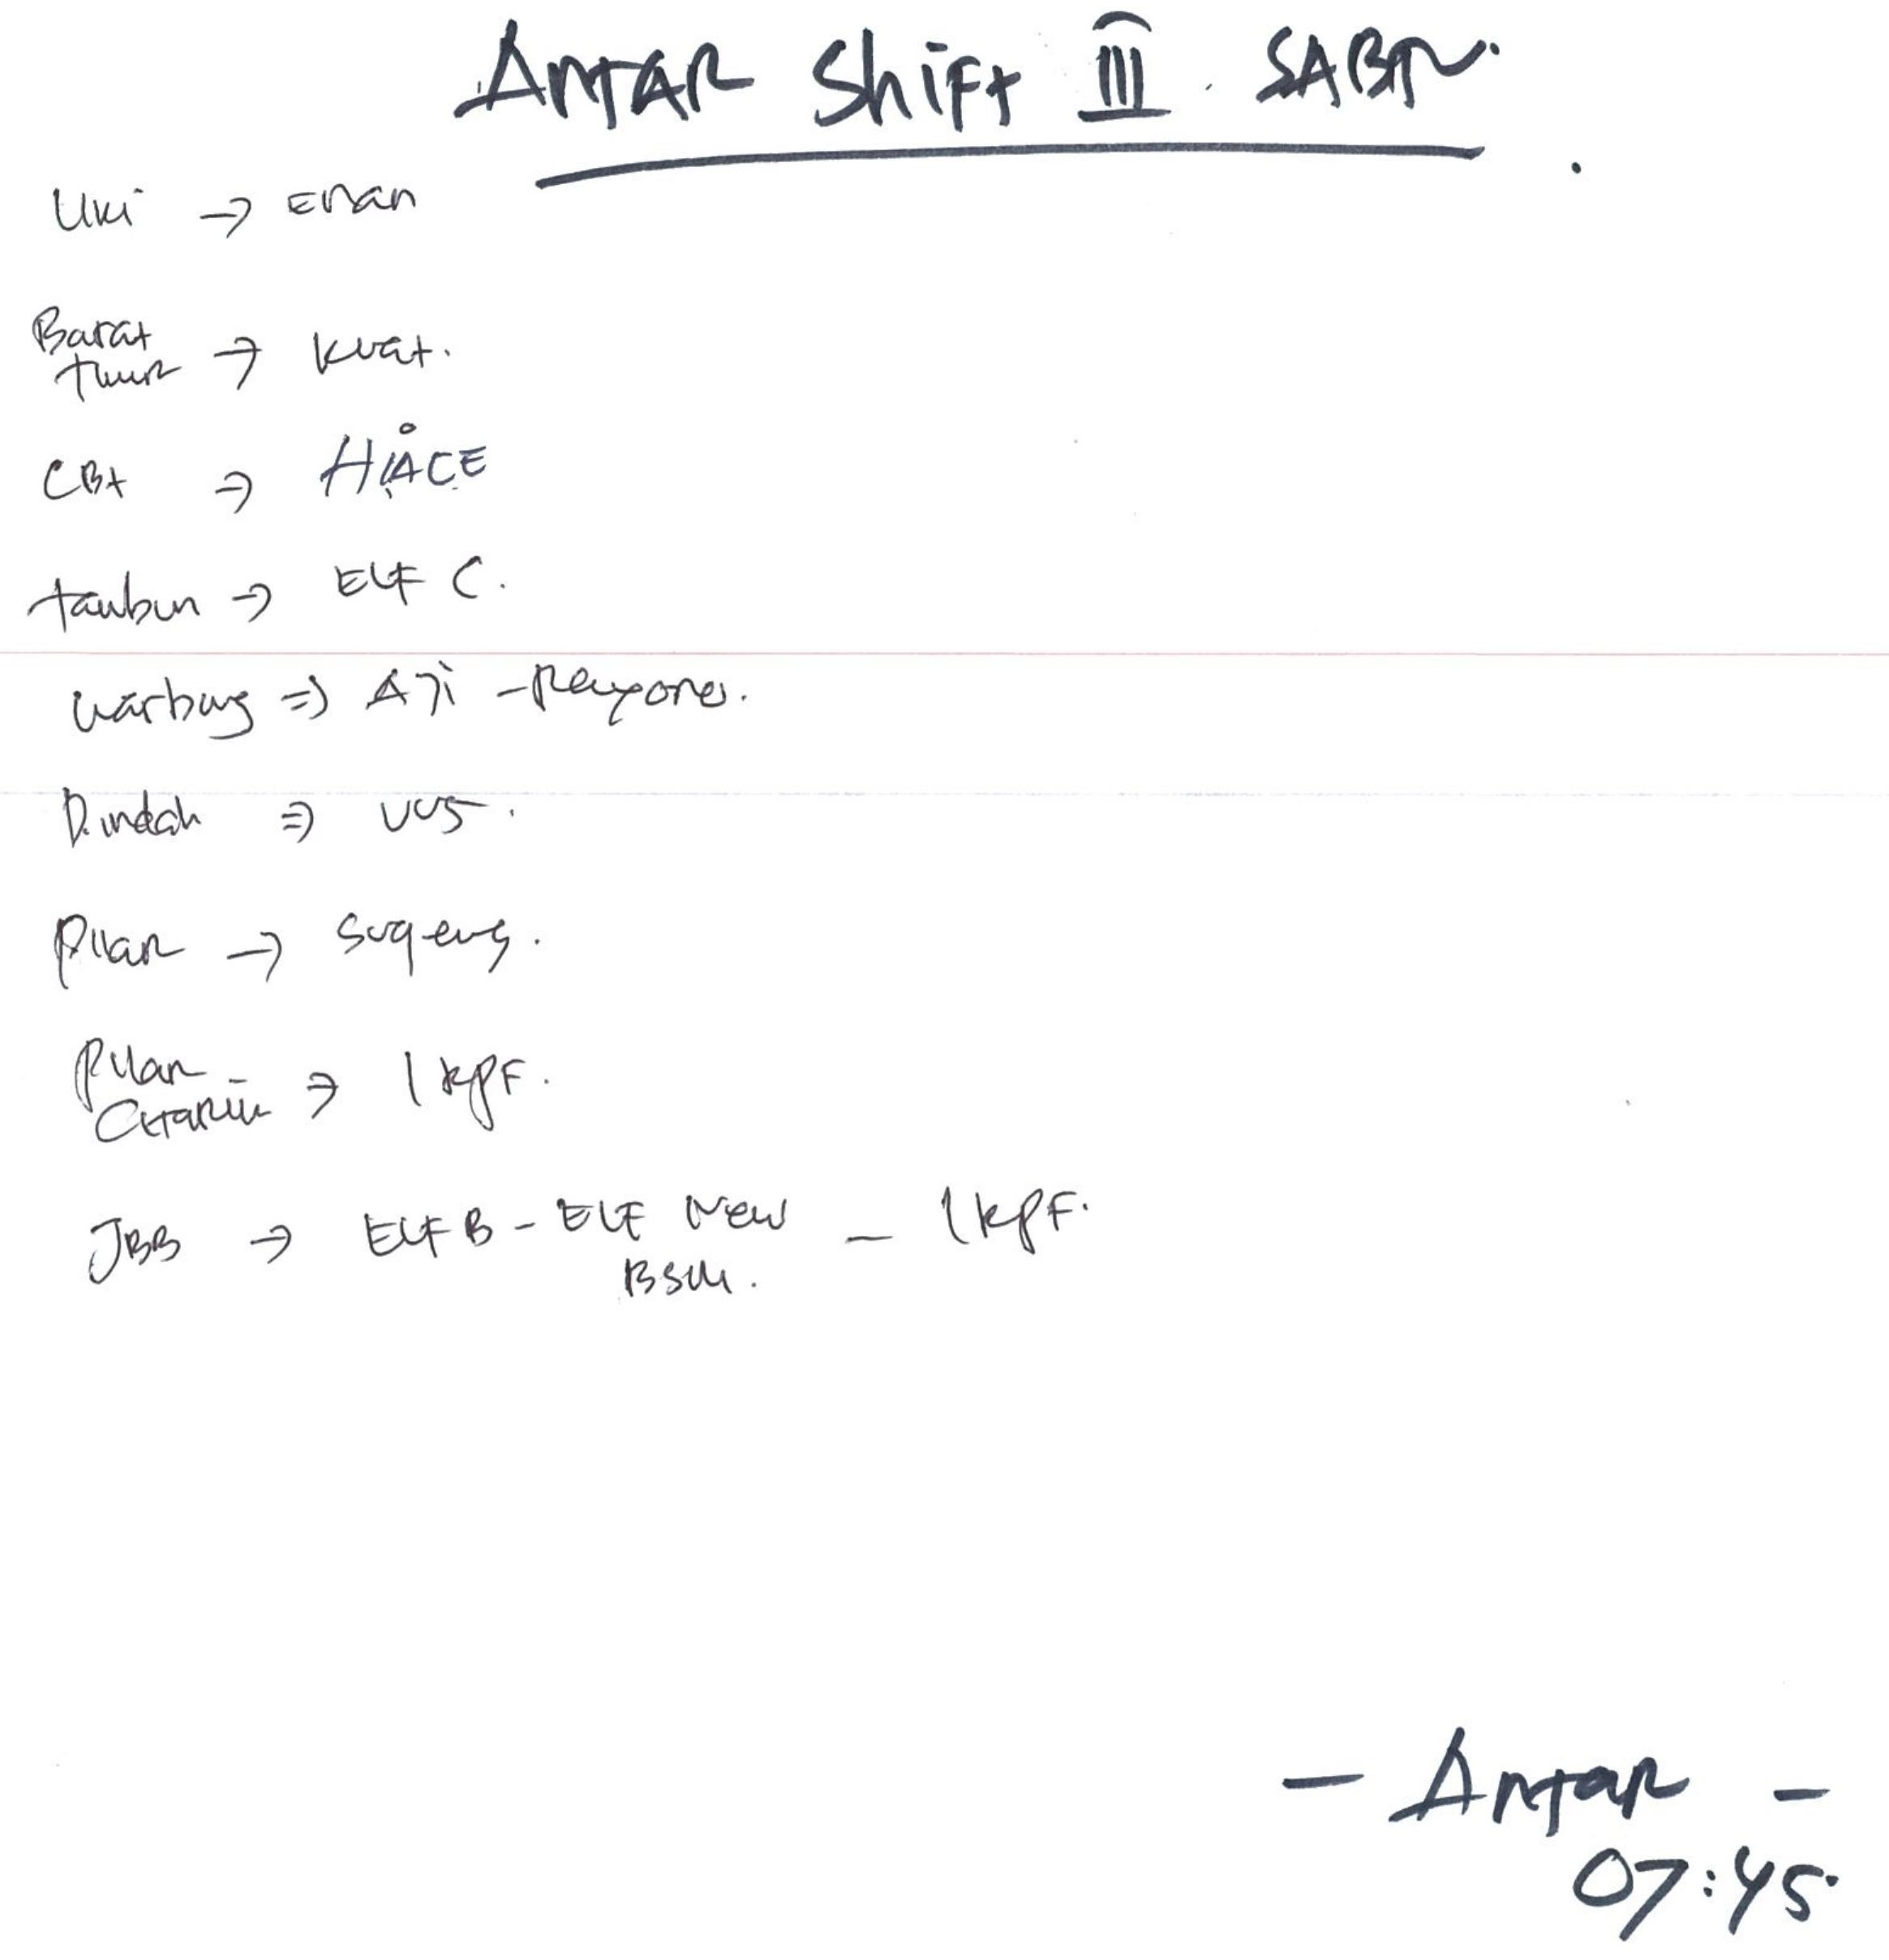 ANTAR Shift III. SABTU.
Uki → Enan
Barat
timur → Kuat.
CBt → HIACE
tambun → ELF C.
warbung ⇒ Aji - Rayono.
P. indah ⇒ UUS.
Pilar → Sugeng.
Pilar -
Citarum → 1 kpf.
JBB → ELF B - ELF New - 1 kpf.
BSM.
- Antar -
07:45